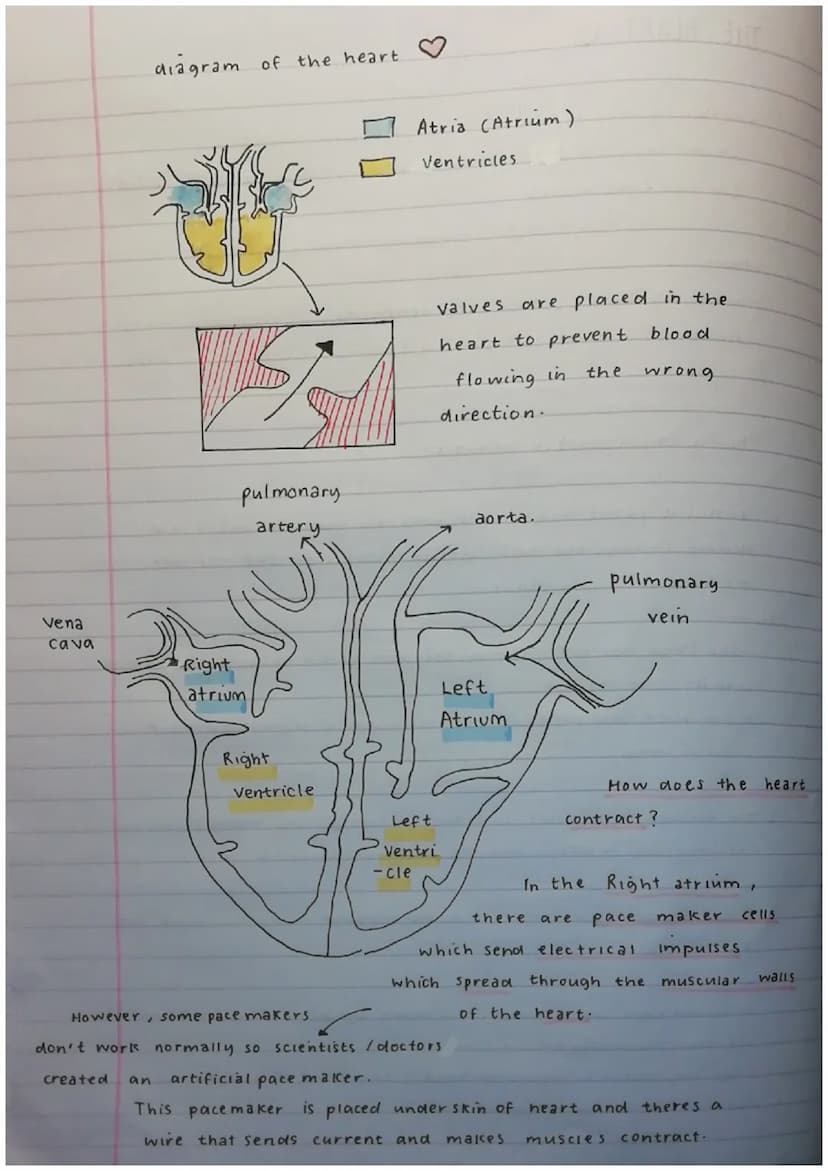 diagram of the heart
Atria (Atrium)
Ventricles
valves are placed in the
heart to prevent blood
flowing in the wrong
direction.
pulmonary
artery
aorta.
pulmonary
vein
vena
cava
Right
atrium
Left
Atrium
Right
ventricle
Left
ventri
-cle
How does the heart
contract?
In the Right atrium,
there are pace maker cells
which send electrical impulses
which spread through the muscular walls
of the heart.
However, some pace makers
don't work normally so scientists/doctors
created an artificial pace maker.
This pacemaker is placed under skin of heart and theres a
wire that sends current and makes muscles contract.